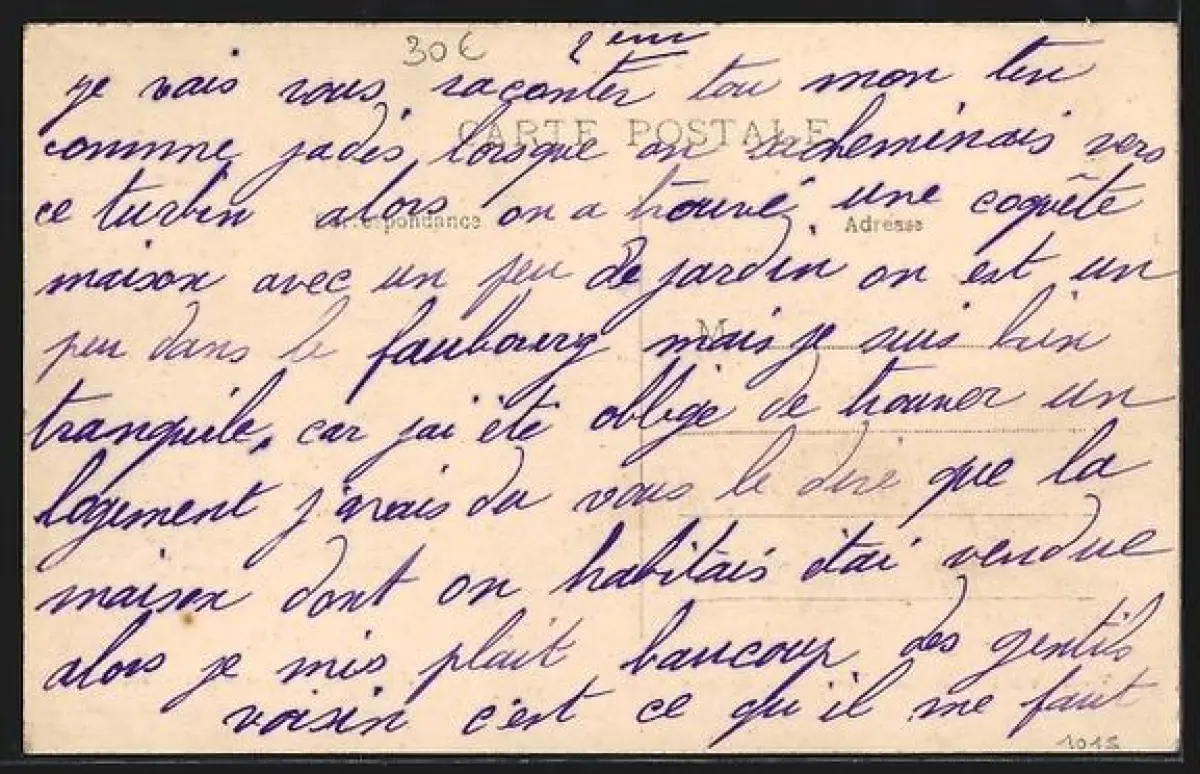 30€ 2ème
je vais vous raconter tou mon ten
CARTE POSTALE
comme jadis, lorsque on sacheminais vers
ce turbin alors on a trouvé une coquête
Correspondance Adresse
maison avec un peu de jardin on est un
M
peu dans le faubourg mais je suis bien
tranquile, car j'ai été obligé de trouver un
logement j'avais du vous le dire que la
maison dont on habitais étai vendue
alors je mis plait baucoup des gentils
voisin c'est ce qu'il me faut
1015